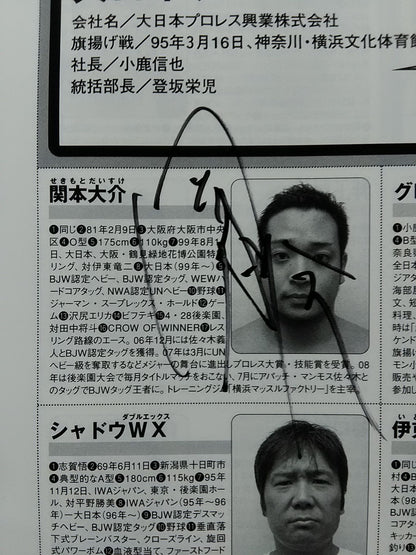 会社名／大日本プロレス興業株式会社
旗揚げ戦／95年3月16日、神奈川・横浜文化体育館
社長／小鹿信也
統括部長／登坂栄児
せきもとだいすけ
関本大介
❶同じ❷81年2月9日❸大阪府大阪市中央
区❹O型❺175cm❻110kg❼99年8月
日、大日本、大阪・鶴見緑地花博公園特
リング、対伊東竜二❽大日本（99年〜）❾
BJW認定ヘビー、BJW認定タッグ、WEWハ
ードコアタッグ、NWA認定UNヘビー❿野球⓫
ジャーマン・スープレックス・ホールド⓬ゲ
ーム⓭沢尻エリカ⓮ビフテキ⓯4・28後楽園、
対田中将斗⓰CROW OF WINNER⓱レス
リング路線のエース。06年12月には佐々木義
人とBJW認定タッグを獲得。07年は3月にUN
ヘビー級を奪取するなどメジャーの舞台に進出しプロレス大賞・技能賞を受賞。08
年は後楽園大会で毎月タイトルマッチをおこない、7月にアパッチ・マンモス佐々木と
のタッグでBJWタッグ王者に。トレーニングジム「横浜マッスルファクトリー」を主宰。
ダブルエックス
シャドウWX
❶志賀悟❷69年6月11日❸新潟県十日町市
❹典型的なA型❺180cm❻115kg❼95年
11月12日、IWAジャパン、東京・後楽園ホー
ル、対平野勝美❽IWAジャパン（95年〜96
年）─大日本（96年〜）❾BJW認定デスマ
ッチヘビー、BJW認定タッグ❿野球⓫垂直落
下式ブレーンバスター、クローズライン、旋回
式パワーボム⓬血液型当て、ファーストフード